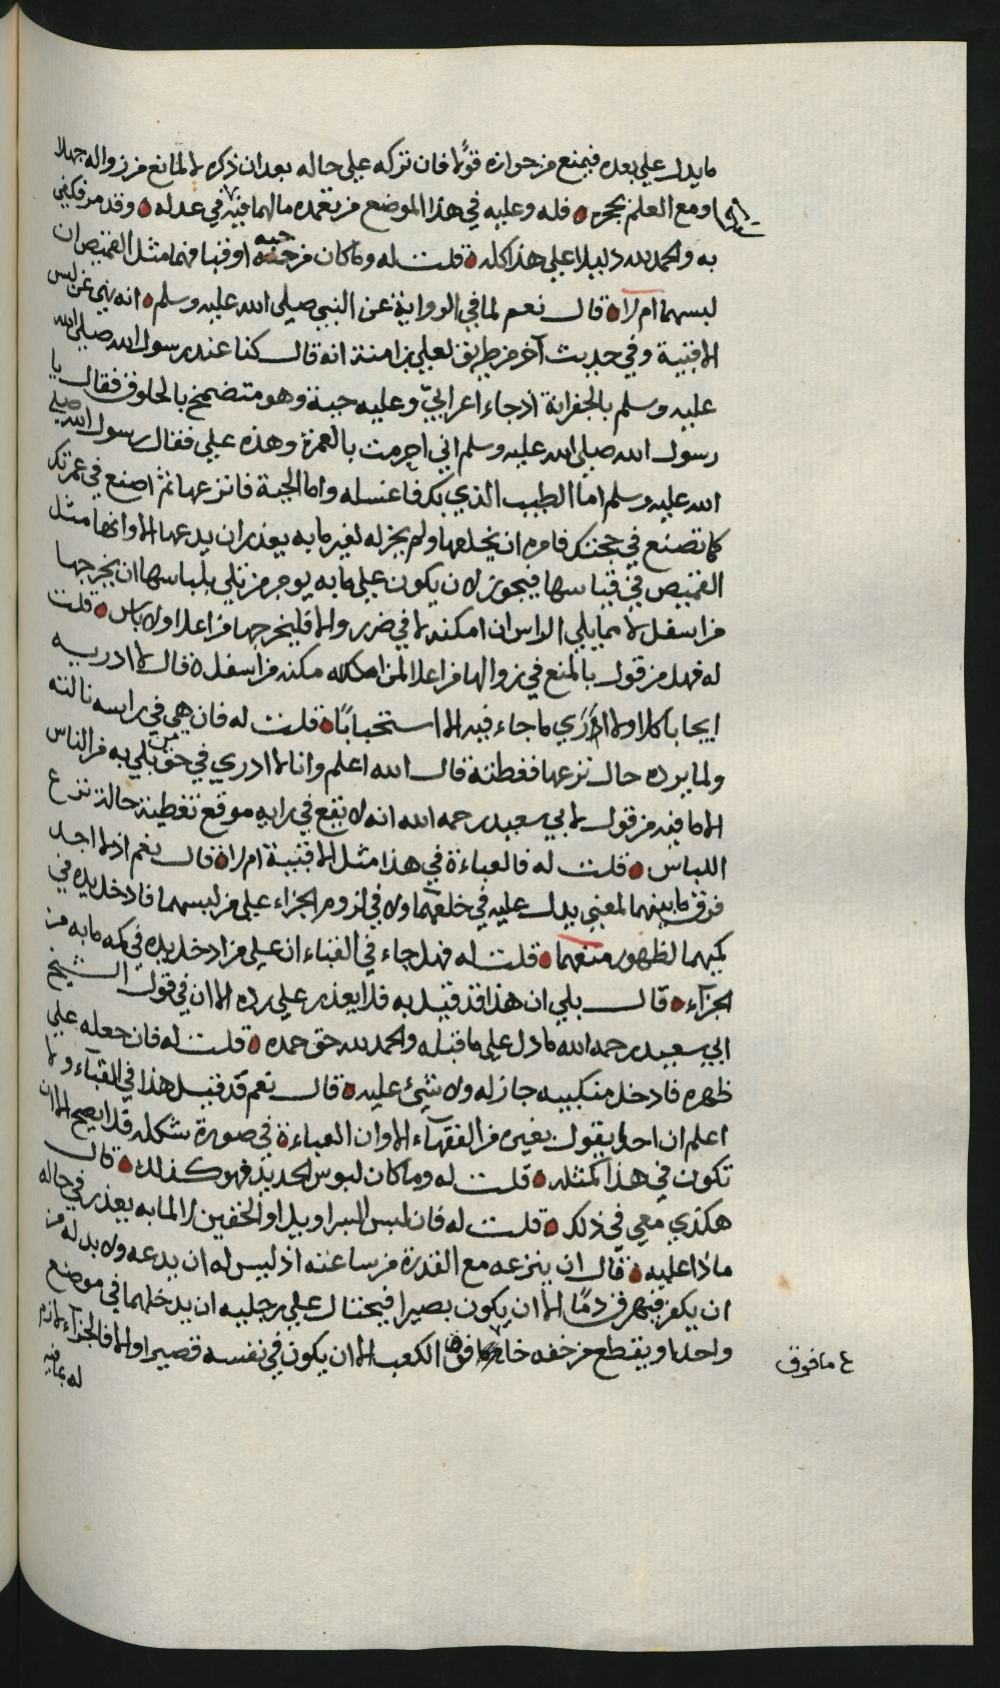 ما يدل على بعده فيمنع من جوازه قولا فان تركه على حاله بعد ان ذكره لا لمانع من زواله جهلا
او مع العلم بحجره فله وعليه في هذا الموضع من تعمده ما لهما فيه في عدله وقد مر فكفى
به والحمد لله دليلا على هذا كله قلت له وما كان من جبة او قبا فهما مثل القميص ان
لبسهما ام لا قال نعم لما في الرواية عن النبي صلى الله عليه وسلم انه نهى عن لبس
الاقبية وفي حديث آخر من طريق لعلي بن امنة انه قال كنا عند رسول الله صلى الله
عليه وسلم بالجعرانة اذ جاء اعرابيّ وعليه جبة وهو متضمخ بالخلوق فقال يا
رسول الله صلى الله عليه وسلم اني احرمت بالعمرة وهذه علي فقال رسول الله صلى
الله عليه وسلم اما الطيب الذي بك فاغسله واما الجبة فانزعها ثم اصنع في عمرتك
كما تصنع في حجتك فامره ان يخلعها ولم يجز له لغير ما به يعذر ان يدعها الا وانها مثل
القميص في قياسها فيجوز لان يكون على ما به يومر من بلي بلباسها ان يخرجها
من اسفل لا مما يلي الراس ان امكنه لا في ضرر والا فليخرجها من اعلا ولا باس قلت
له فهل من قول بالمنع في زوالها من اعلا لمن امكنه من اسفل قال لا ادريه
ايجابا كلا ولا ادري ما جاء فيه الا استحبابًا قلت له فان هي في راسه نالته
ولما يرده حال نزعها فغطته قال الله اعلم وانا لا ادري في حق من بلي به من الناس
الا ما فيه من قول لابي سعيد رحمه الله انه لا يقع في رايه موقع تغطية حالة نزع
اللباس قلت له فالعباءة في هذا مثل الاقبية ام لا قال نعم اذ لا اجد
فرق ما بينهما لمعنى يدل عليه في خلعهما ولا في لزوم الجزاء على من لبسهما فادخل يده في
كميهما لظهور منعهما قلت له فهل جاء في القباء ان على من ادخل يده في كمه ما به من
الجزآء قال بلى ان هذا قد قيل به فلا يعذر على رده الا ان في قول الشيخ
ابي سعيد رحمه الله ما دل على ما قبله والحمد لله حق حمده قلت له فان جعله على
ظهره فادخل منكبيه جاز له ولا شيئ عليه قال نعم قد قيل هذا في القبآء ولا
اعلم ان احدا يقول بغيره من الفقهآء الا وان العباءة في صورة شكله فلا يصح الا ان
تكون في هذا كمثله قلت له وما كان لبوس الحديد فهو كذلك قال
هكذي معي في ذلك قلت له فان لبس السراويل او الخفين لا لما به يعذر في حاله
ماذا عليه قال ان ينزعه مع القدرة من ساعته اذ ليس له ان يدعه ولا بد له من
ان يكفر فيهرق دمًا الا ان يكون بصيرا فيحتال على رجليه ان يدخلهما في موضع
واحد او يقطع من خفه الكعب الا ان يكون في نفسه قصيرا والا فالجزآء لازم
له بما فيه
ع ما فوق